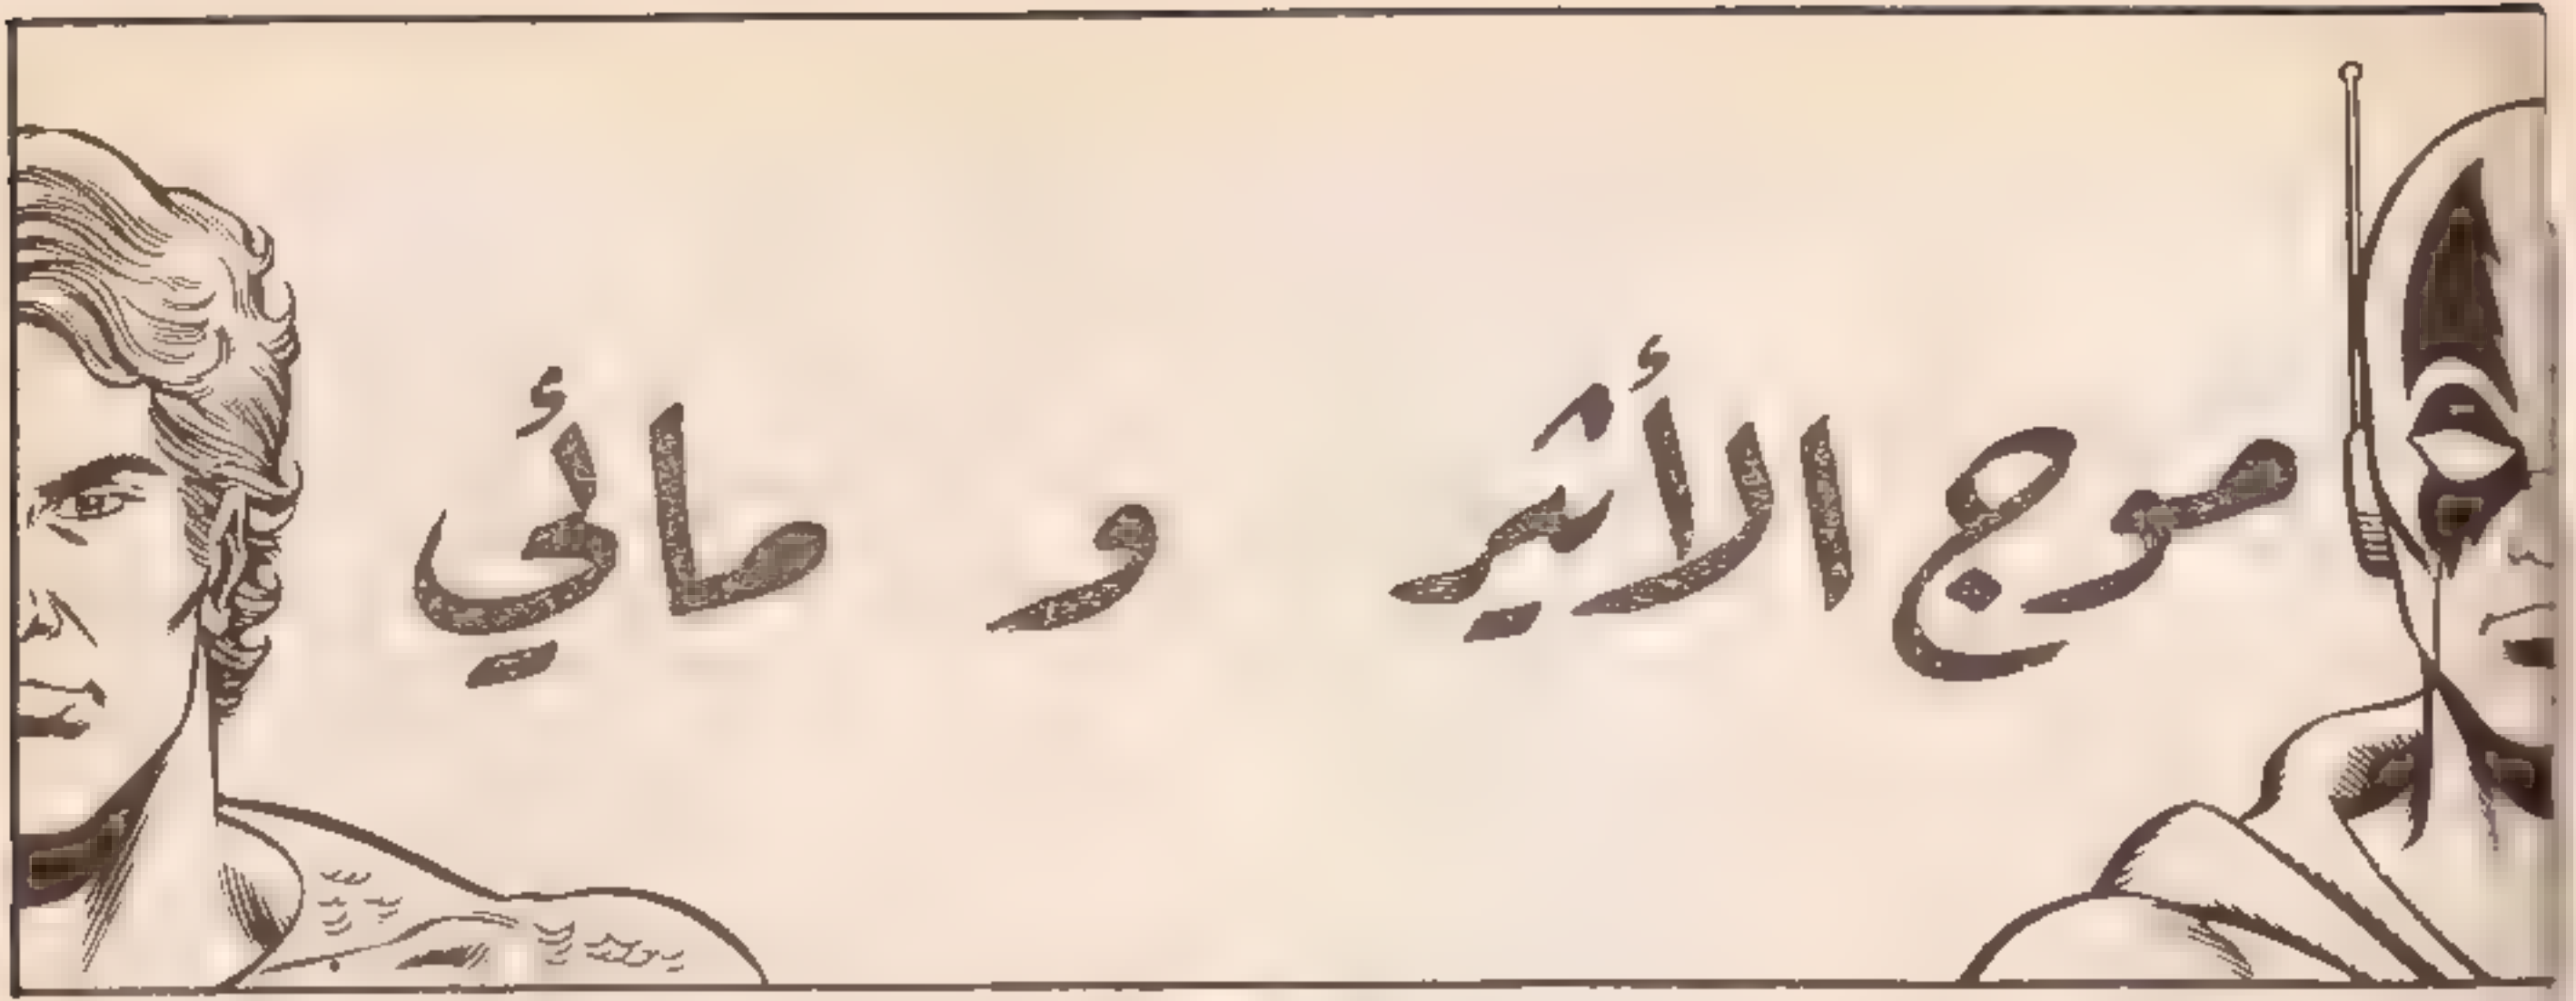 موج الأثير و مائي